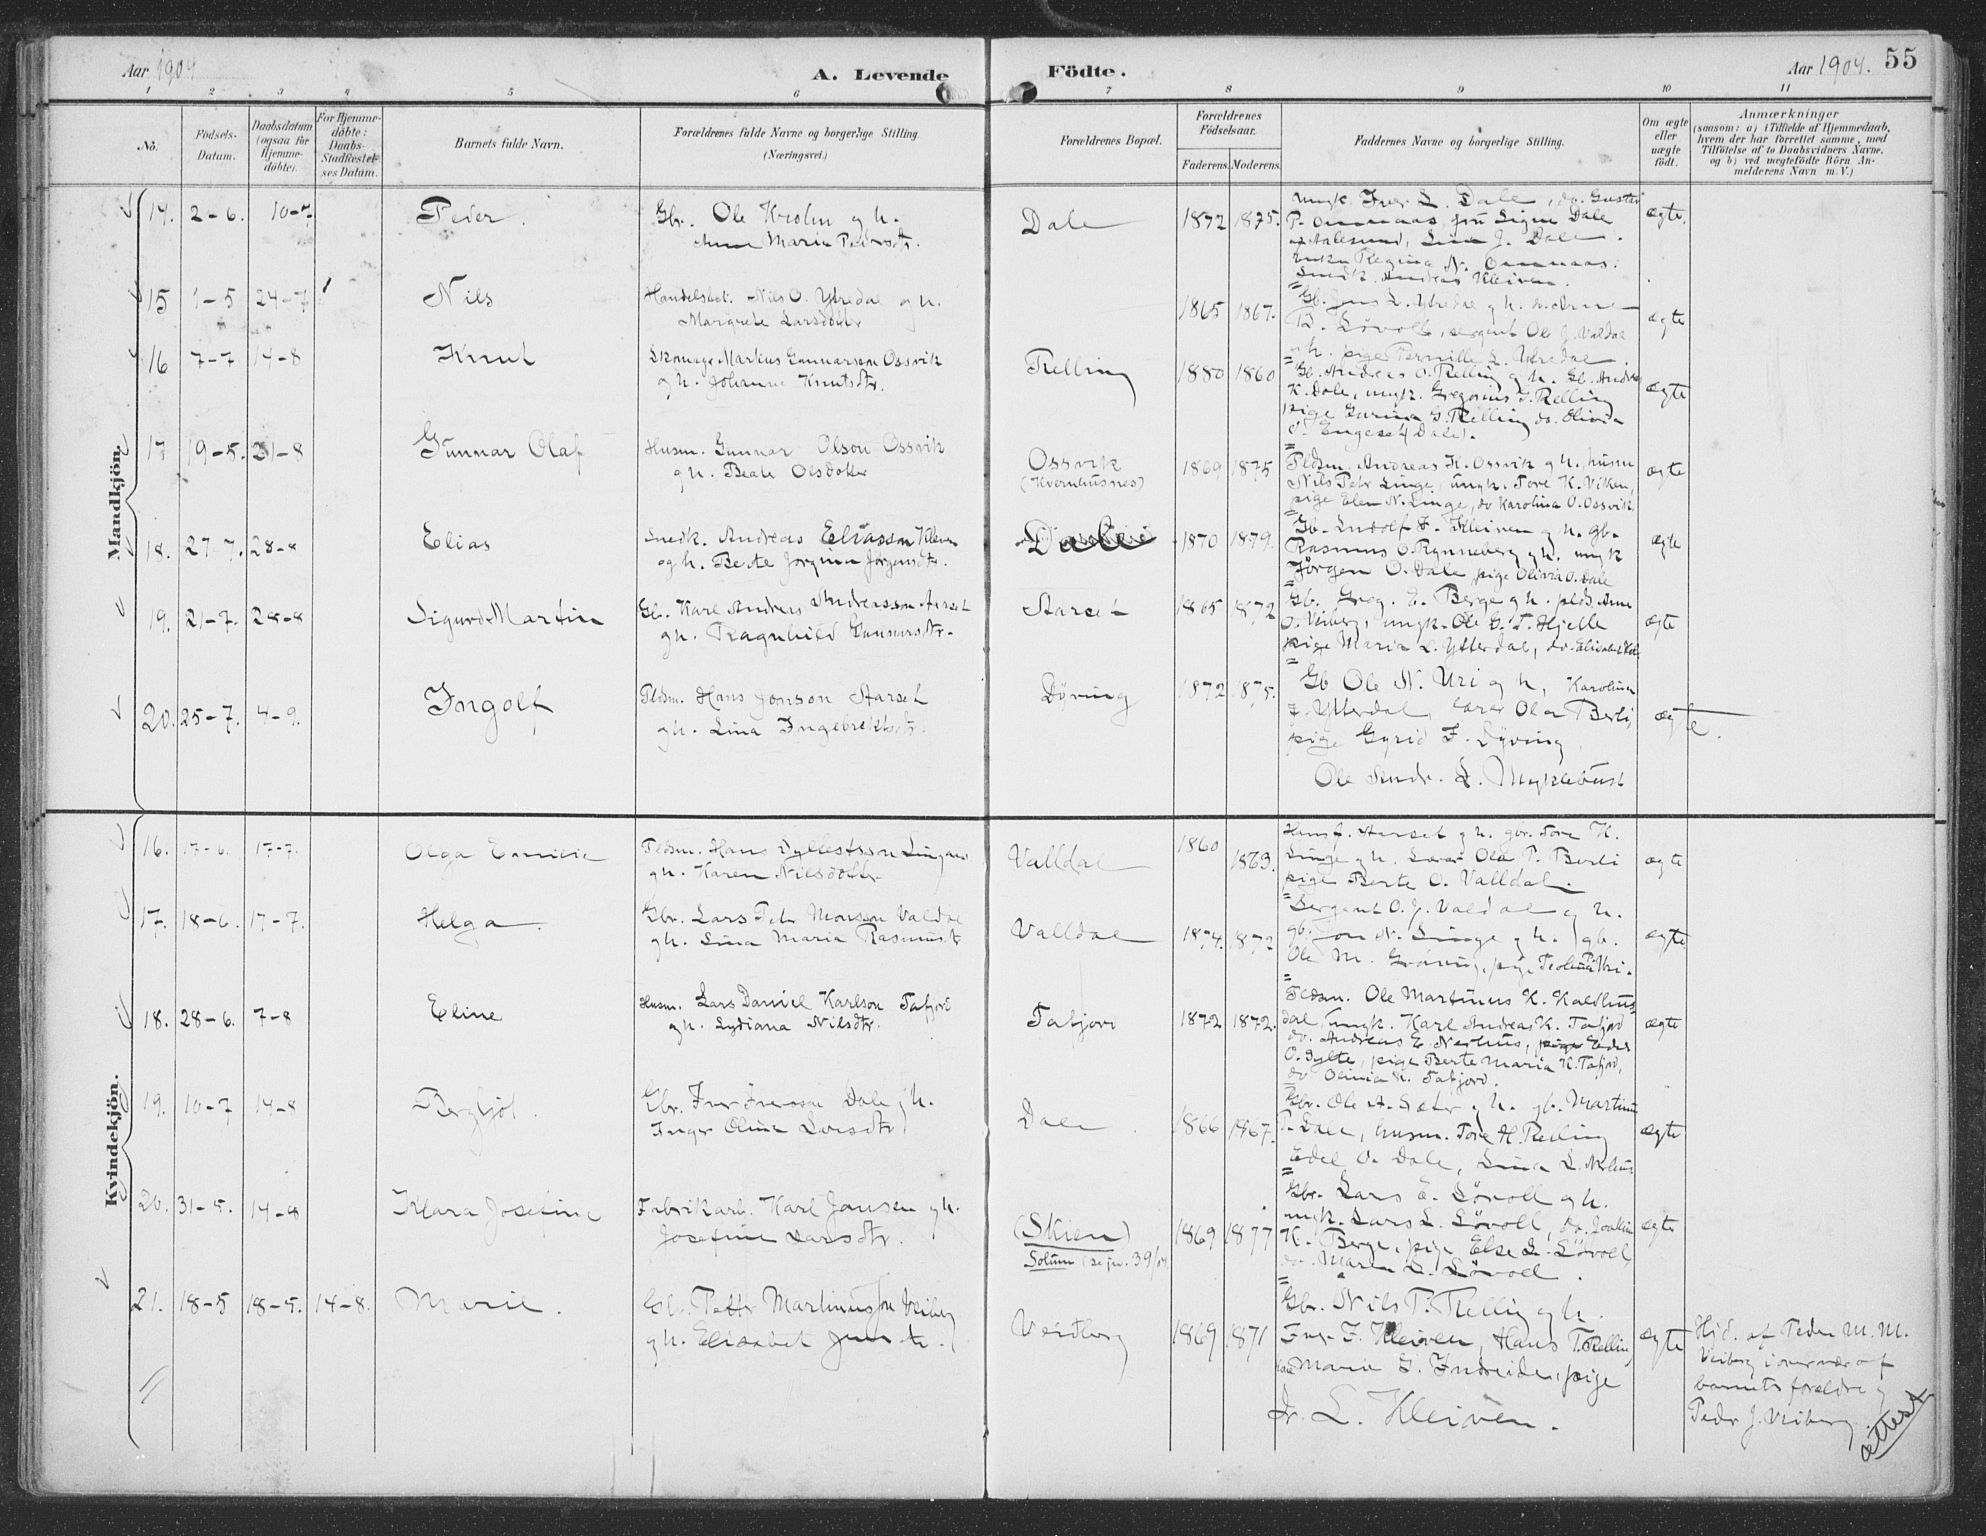 Aar 1904
A. Levende
Födte.
Aar 1904.
55
1 2 3 4 5 6 7 8 9 10 11
No.
Födsels-
Datum.
Daabsdatum
(ogsaa for
Hjemme-
döbte).
For Hjemme-
döbte:
Daabs-
Stadfæstel-
ses Datum.
Barnets fulde Navn.
Forældrenes fulde Navne og borgerlige Stilling.
(Næringsvei.)
Forældrenes Bopæl.
Forældrenes
Födselsaar.
Faderens. Moderens.
Faddernes Navne og borgerlige Stilling.
Om ægte
eller
uægte
födt.
Anmærkninger
(saasom: a) i Tilfælde af Hjemmedaab,
hvem der har forrettet samme, med
Tilföielse af to Daabsvidners Navne,
og b) ved uægtefödte Börn An-
melderens Navn m. V.)
Mandkjön.
14. 2-6. 10-7 Peder.
Gbr. Ole Krohn og h.
Anne Marie Pedersdtr.
Dale 1872 1875.
ungk. Iver L. Dale, do. Gustav
P. Ommaas, frü Signe Dale
af Aalesund, Lina J. Dale.
enke Regine N. Ommaas.
Snedk. Andreas Kleiven.
ægte.
15 1-5 24-7 Nils
Handelsbet. Nils O. Ytredal og h.
Margrete Larsdotter
1865 1867.
Gb. Jens L. Ytredal og h.
Lövoll, sergent Ole J. Valdal
og h. pige Pernille L. Ytredal.
ægte
16 7-7 14-8 Knut
Skomager Markus Gunnarson Ossvik
og h. Johanne Knutsdtr.
Relling 1880 1860
Gb. Andreas O. Relling og h. Gb. Andreas
K. Dale, ungk. Gregorius J. Relling
pige Gurina G. Relling do. Olivia
Engeset (Dale).
ægte
17 19-5. 21-8 Gunnar Olaf
Husm. Gunnar Olson Ossvik
og h. Beate Olsdotter
Ossvik
(Kvernhusnes)
1869 1875
Pldsm. Andreas K. Ossvik og h., husm
Nils Petr Linge, ungk. Tore K. Viken,
pige Elen N. Linge, do Karolina O. Ossvik.
ægte
18. 27-7. 28-8 Elias
Snedk. Andreas Eliasson Kleiven
og h. Berte Jorgine Jörgensdtr.
Dale 1870 1879.
Gb. Ludolf I. Kleiven og h. gb.
Rasmus O. Rynneberg og h. ungk
Jörgen O. Dale pige Olivia O. Dale
ægte
19. 21-7. 28-8 Sigurd Martin
Gb. Karl Andreas Andreasson Aarset
og h. Ragnhild Gunnarsdtr.
Aarset 1865 1872
Gb. Greg. E. Berge og h. plds. Arne
O. Veiberg, ungk. Ole G. T. Hjelle
pige Maria L. Ytterdal, do. Elisabet
ægte
20. 25-7. 4-9. Ingolf
Pldsm. Hans Jonson Aarset
og h. Lina Ingebrektsdtr.
Dyving 1872 1875.
Gb Ole N. Uri og h, Karoline
Ytterdal, lærer Ola Berli,
pige Gyrid I. Dyving
Ole Andr. L. Myklebust
ægte.
Kvindekjön.
16. 17-6. 17-7. Olga Emilie
Pldsm. Hans Syllestsson Lingaas
og h. Karen Nilsdotter
Valldal 1860 1863.
Hans J. Aarset og h. gbr. Tore K.
Linge og h. Lærer Ola P. Berli
pige Berte O. Valldal.
ægte
17. 18-6. 17-7. Helga.
Gbr. Lars Petr Monsson Valdal
og h. Lina Maria Rasmusdtr
Valldal 1874. 1872
Sergent O. J. Valdal og h.
gb. Jon N. Linge og h. gb.
Ole M. Gröning, pige Teoline P. Uri.
ægte
18. 28-6. 7-8 Eline
Husm. Lars Daniel Karlson Tafjord
og h. Lydiana Nilsdtr.
Tafjord 1872 1872.
Pldsm. Ole Martinus K. Kaldhus
dal, ungk. Karl Andreas K. Tafjord
do. Andreas E. Nerhus,
O. Sylte, pige Berte Maria K. Tafjord,
do Olivia K. Tafjord.
ægte
19. 10-7 14-8 Bergljot.
Gbr. Iver Iversson Dale og h.
Inger Oline Larsdtr
Dale. 1866 1867.
Gbr. Ole A. Sæter og h. gb. Martinus
P. Dale, husm. Tore H. Relling
Edel O. Dale, Lina L. Melhus
ægte
20. 31-5. 14-8 Klara Josefine
Fabrikarb. Karl Jansen og h.
Josefine Larsdtr.
(Skien)
Solum (se jr. 39/04.
1869 1877
Gbr. Lars E. Lövoll og h.
ungk. Lars L. Lövoll, do. Joakim
K. Berge, pige Else L. Lövoll,
do. Maren L. Lövoll.
ægte
21. 18-5 18-5. 14-8. Marie.
Gbr. Petter Martinusson Veiberg
og h. Elisabet Jensdtr.
Veidberg 1869 1871
Gbr. Nils P. Relling og h.
Ingr. I. Kleiven, Hans T. Relling
Maria G. Indreide, pige
L. Kleiven.
ægte
Hjd. af Peder M. M.
Veiberg i overvær af
barnets forældre og
Peder J. Veiberg.
attest